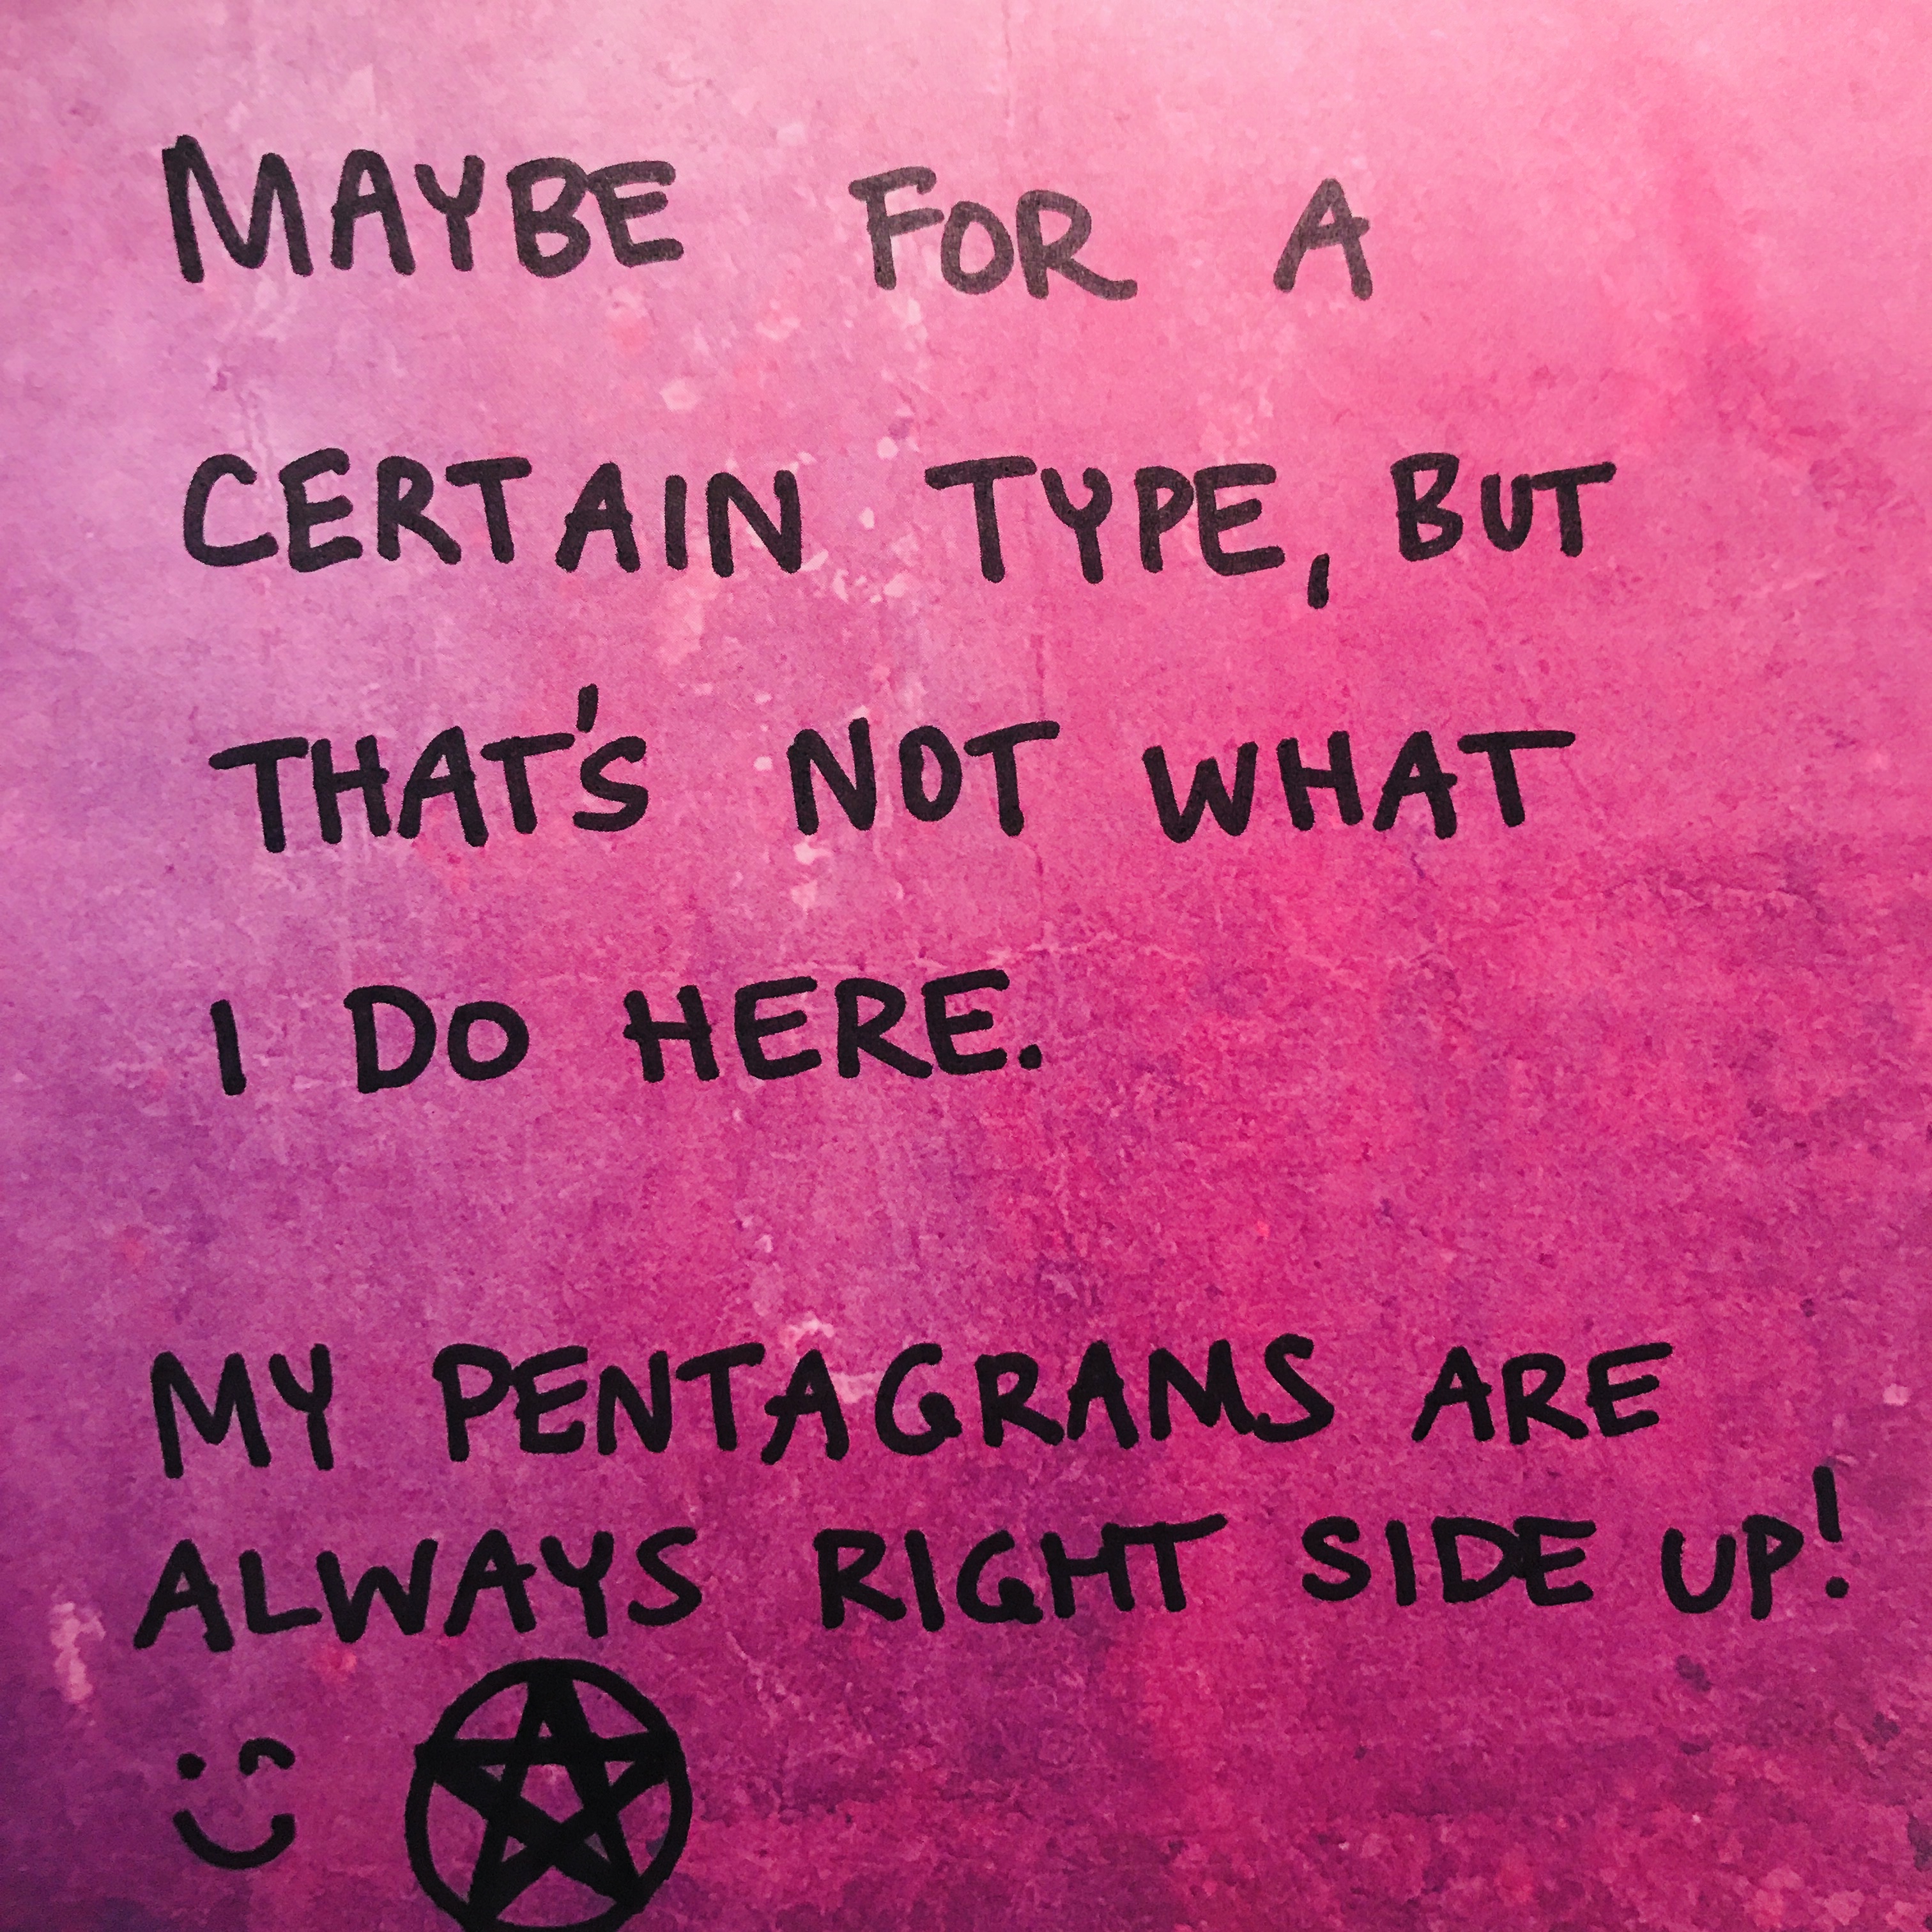 MAYBE FOR A
CERTAIN TYPE, BUT
THAT'S NOT WHAT
I DO HERE.
MY PENTAGRAMS ARE
ALWAYS RIGHT SIDE UP!